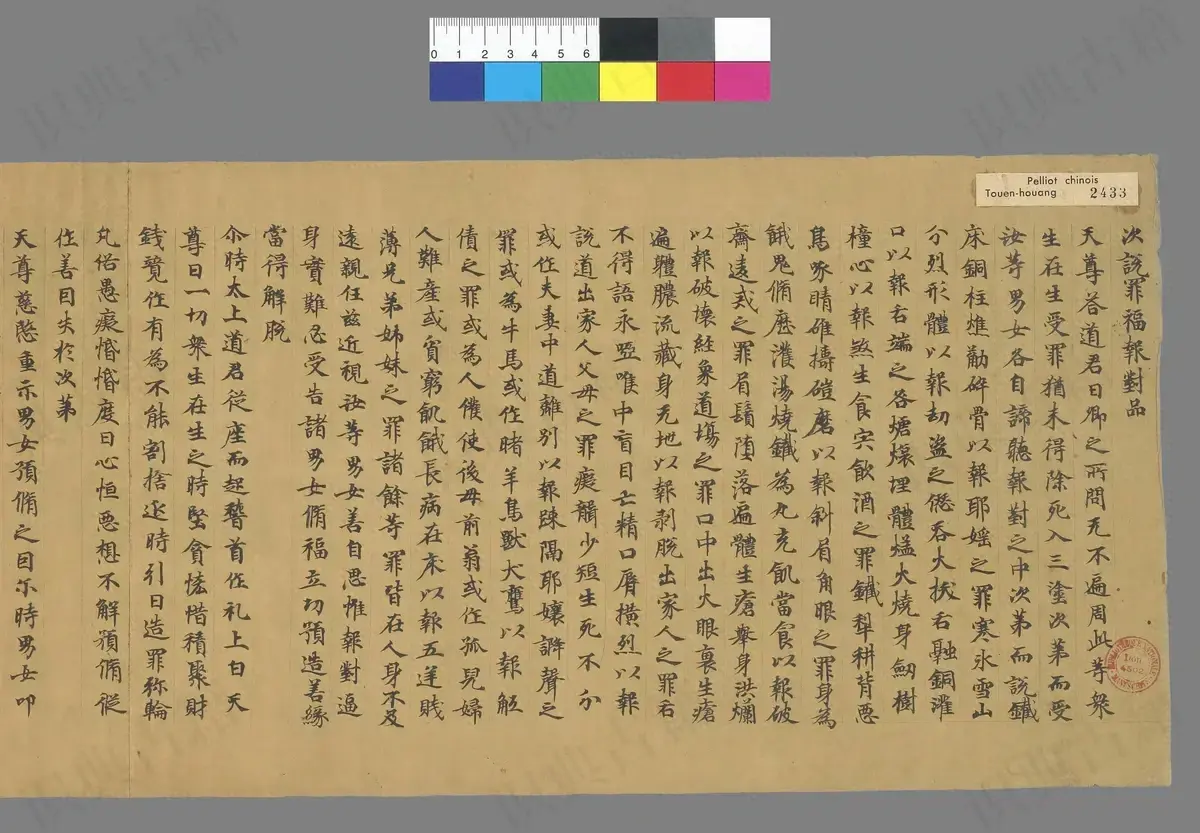 Pelliot chinois
Touen-houang 2433
0 1 2 3 4 5 6
次說罪福報對品
天尊荅道君曰卿之所問无不遍周此等衆
生在生受罪猶未得除死入三塗次第而受
汝等男女各自諦聽報對之中次第而說鐵
床銅柱燋觔碎骨以報耶婬之罪寒氷雪山
分烈形體以報劫盜之僽吞火抾舌融銅灌
口以報舌端之咎爊煨埋體煴火燒身劒樹
橦心以報煞生食宍飲酒之罪鐵犁耕背惡
鳥啄睛碓擣磑磨以報斜眉角眼之罪身為
餓鬼備歷濩湯燒鐵為丸充飢當食以報破
齋違戒之罪眉鬚墮落遍體生瘡舉身洪爛
以報破壞経象道塲之罪口中出火眼裏生瘡
遍體膿流藏身无地以報剥脫出家人之罪舌
不得語永瘂唯中盲目亡精口脣橫烈以報
說道出家人父母之罪癡聾少短生死不分
或作夫妻中道離別以報踈隔耶孃諍聲之
罪或為牛馬或作睹羊鳥獸犬鷰以報觝
債之罪或為人僕使後母前翁或作孤兒婦
人難產或貧窮飢餓長病在床以報五逆賤
薄兄弟姊妹之罪諸餘等罪皆在人身不及
遠親任兹近視汝等男女善自思惟報對逼
身實難忍受告諸男女脩福立功預造善緣
當得解脫
尒時太上道君從座而起䭫首作礼上白天
尊曰一切衆生在生之時堅貪恡惜積聚財
錢覓作有為不能割捨迯時引日造罪弥輪
凡俗愚癡惛惛度日心恒惡想不解預脩從
作善因失於次第
天尊慈愍重示男女預脩之因尒時男女叩